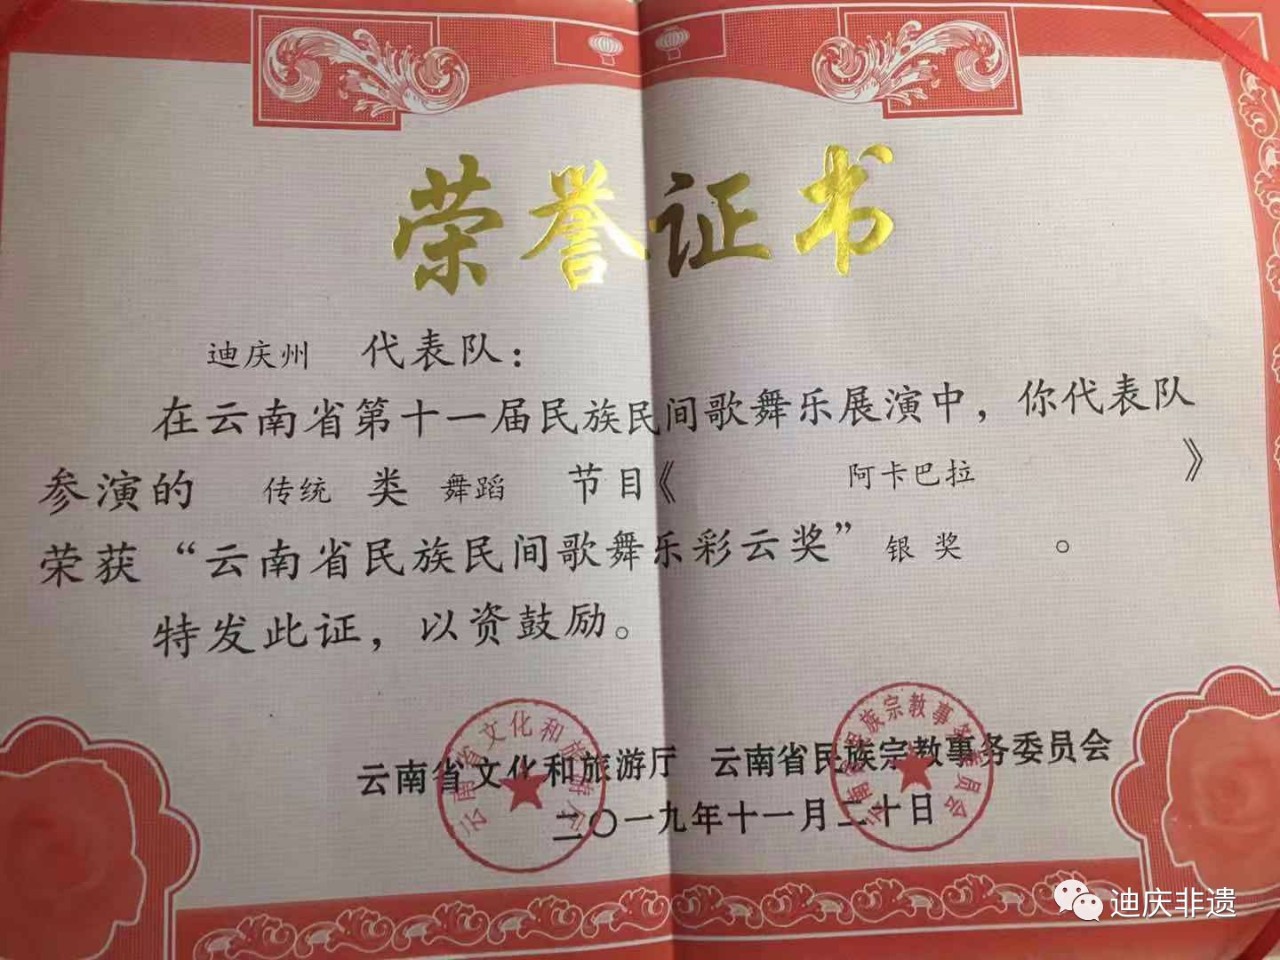 荣誉证书
迪庆州 代表队：
在云南省第十一届民族民间歌舞乐展演中，你代表队
参演的 传统 类 舞蹈 节目《 阿卡巴拉 》
荣获“云南省民族民间歌舞乐彩云奖”银奖。
特发此证，以资鼓励。
云南省文化和旅游厅 云南省民族宗教事务委员会
二〇一九年十一月二十日
云南省文化和旅游厅
云南省民族宗教事务委员会
迪庆非遗